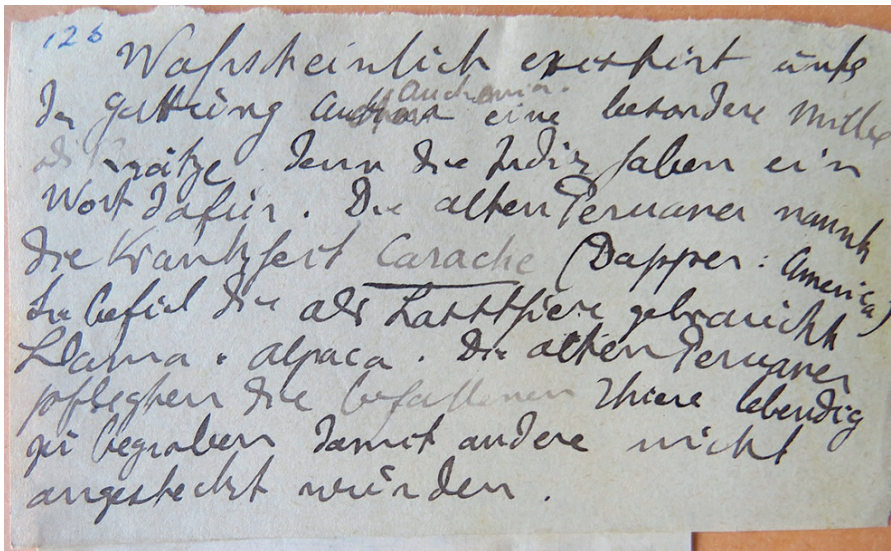 126
Wahrscheinlich existirt auf
der Gattung Auchenia eine besondere Milbe
als Krätze denn die Indier haben ein
Wort dafür. Die alten Peruaner nannten
die Krankheit Carache (Dapper: America)
Sie befiel die als Lastthiere gebraucht
Llama u alpaca. Die alten Peruaner
pflegten die befallenen Thiere lebendig
zu begraben damit andere nicht
angesteckt würden.